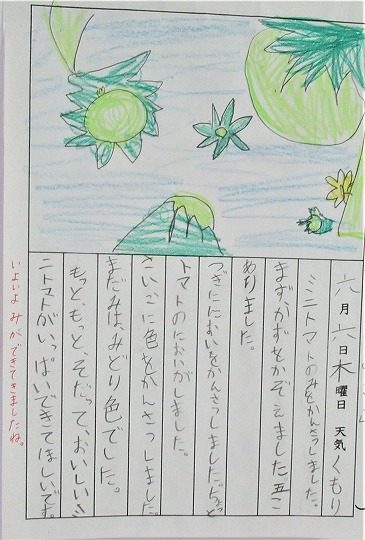 六月六日木曜日 天気くもり
ミニトマトのみをかんさつしました。
まず、かずをかぞえました。五こ
ありました。
つぎににおいをかんさつしました。ちょっと
トマトのにおいがしました。
さいごに色をかんさつしました。
まだみは、みどり色でした。
もっと、もっと、そだって、おいしいミ
ニトマトがいっぱいできてほしいです。
いよいよ みができてきましたね。